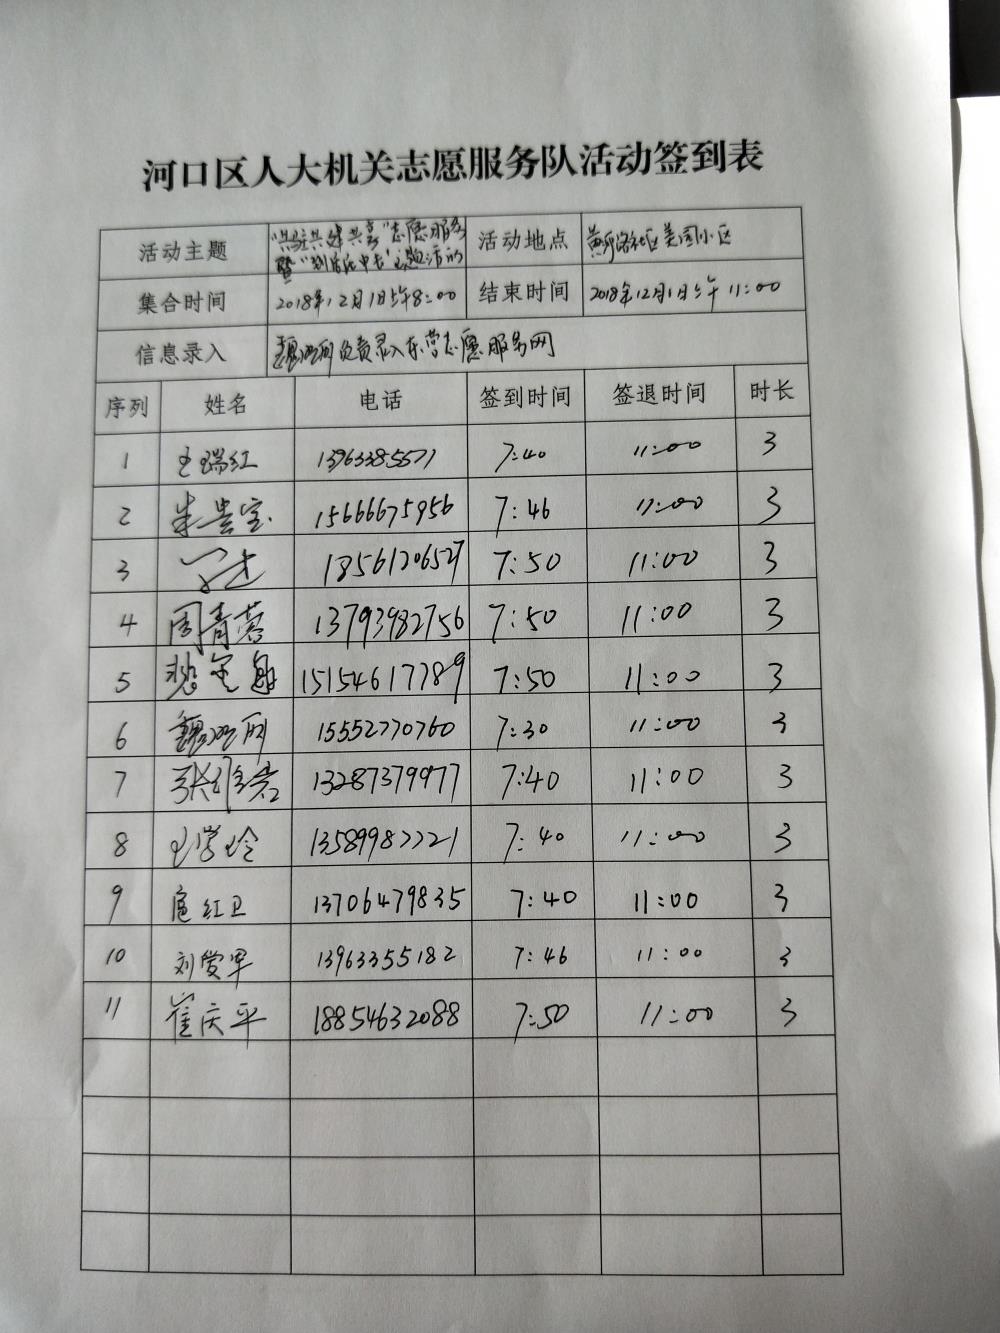 河口区人大机关志愿服务队活动签到表
活动主题 "共驻共建共享"志愿服务 活动地点 社区美国小区
暨"到 主题活动
集合时间 2018年12月1日上午8:00 结束时间 2018年12月1日上午 11:00
信息录入 负责录入东营志愿服务网
序列 姓名 电话 签到时间 签退时间 时长
1 王瑞红 13963385571 7:40 11:00 3
2 朱贵宝 15666675956 7:46 11:00 3
3 18561206527 7:50 11:00 3
4 周青 13793982756 7:50 11:00 3
5 15154617789 7:50 11:00 3
6 15552770760 7:30 11:00 3
7 张 13287379977 7:40 11:00 3
8 王学玲 13589987721 7:40 11:00 3
9 扈红卫 13706479835 7:40 11:00 3
10 刘爱军 13963355182 7:46 11:00 3
11 崔庆平 18854632088 7:50 11:00 3